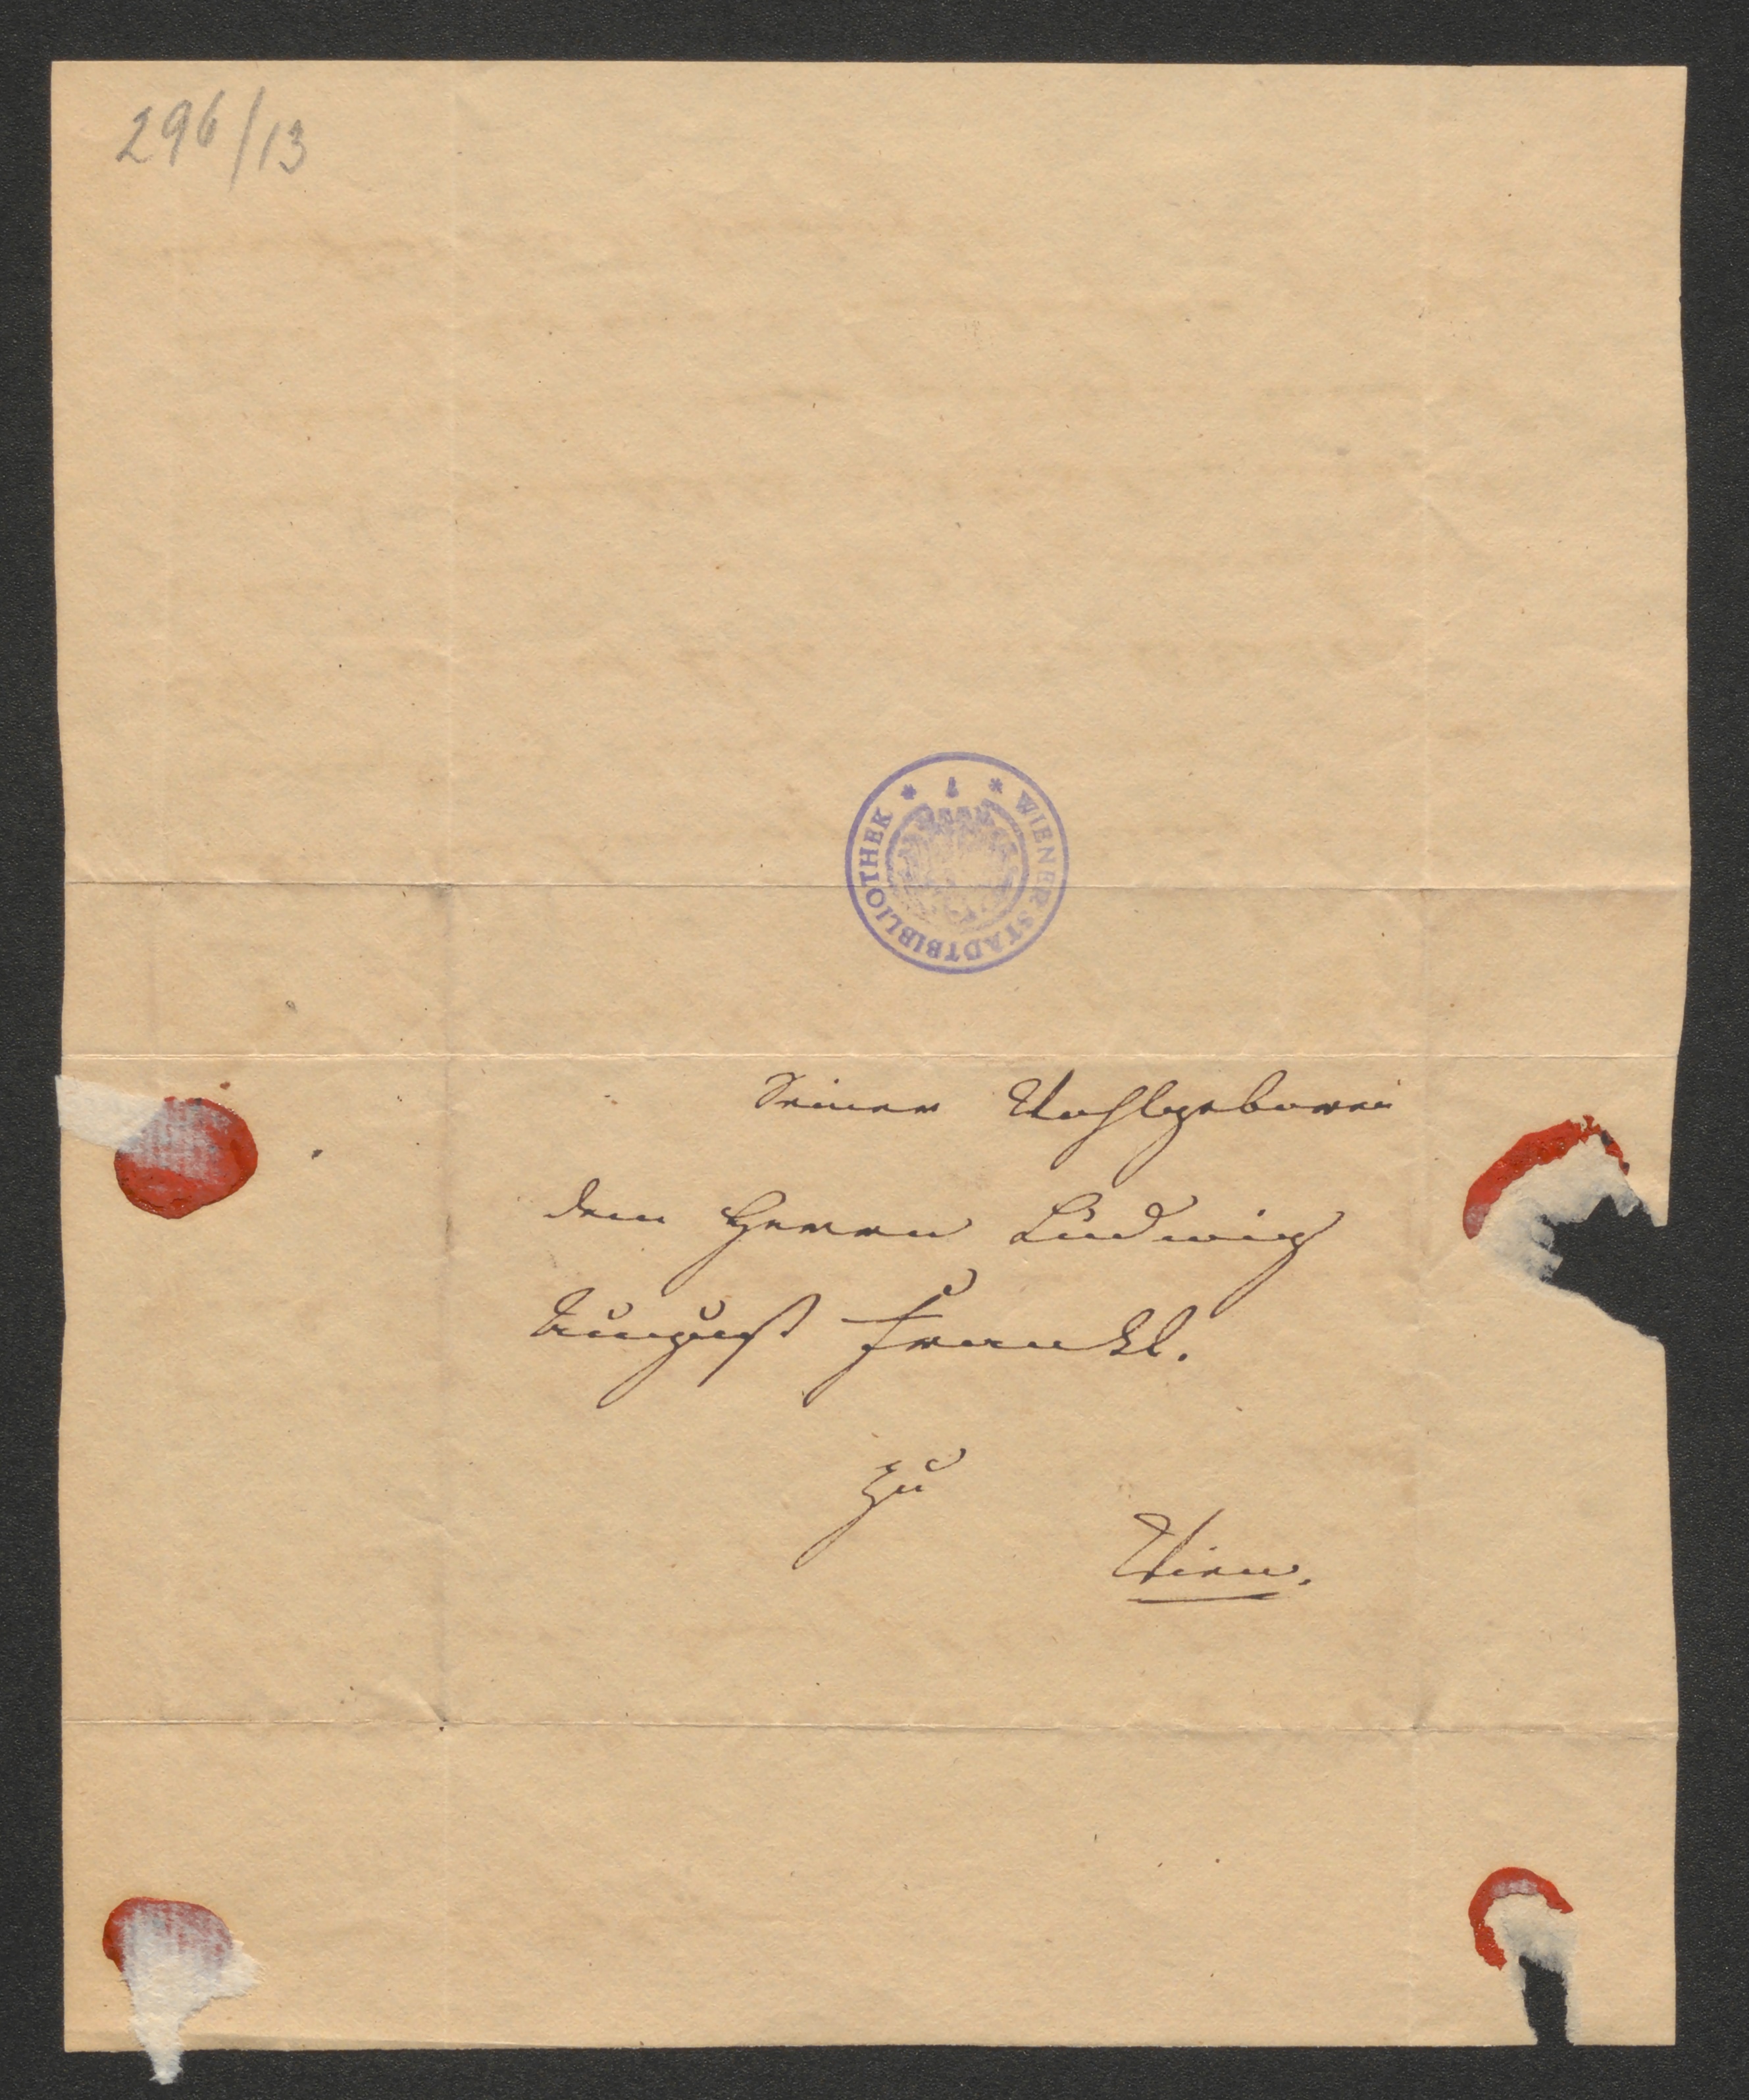 296/13
* WIENER STADTBIBLIOTHEK *
Seiner Wohlgeboren
dem Herrn Ludwig
August Frankl.
zu
Wien.